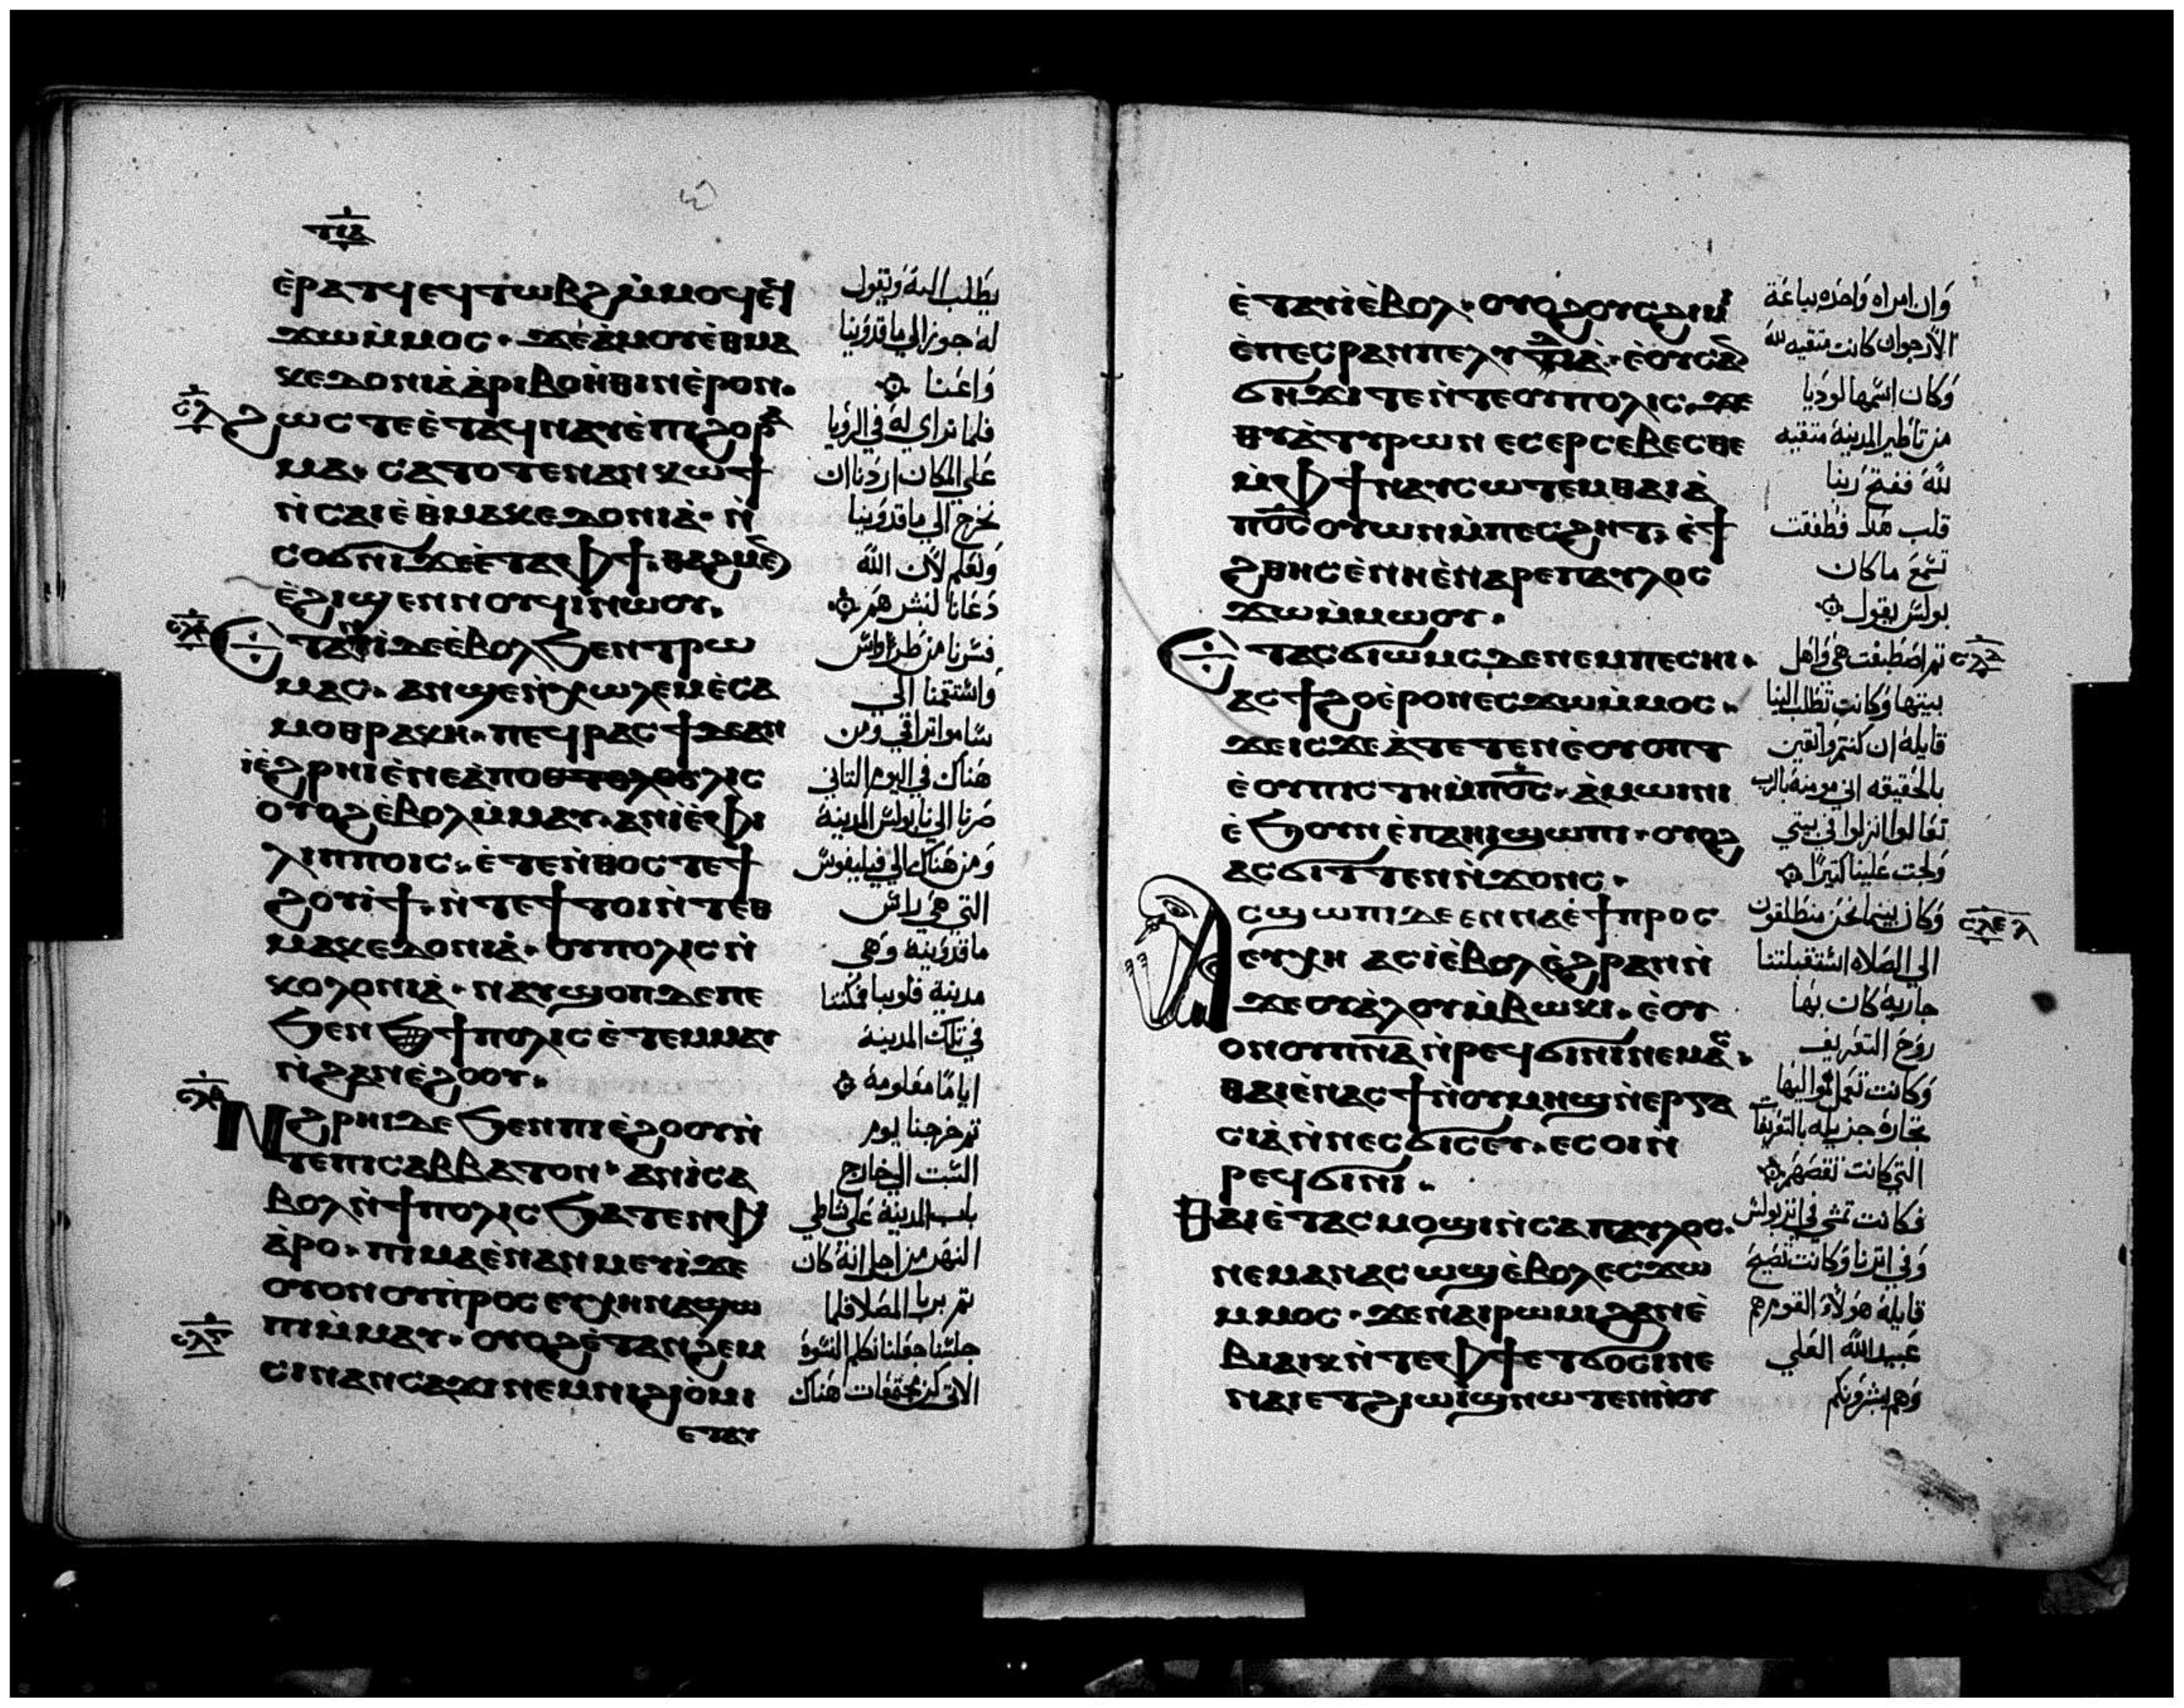 ⲉ̀ⲣⲁⲧϥ ⲉϥⲧⲱⲃϩ ⲙ̀ⲙⲟϥ ⲉϥ
ϫⲱ ⲙ̀ⲙⲟⲥ· ϫⲉ ⲁ̀ⲙⲟⲩ ⲉ̀ⲑⲙⲁ
ⲕⲉⲇⲟⲛⲓⲁ̀ ⲁ̀ⲣⲓⲃⲟⲏ̀ⲑⲓⲛ ⲉ̀ⲣⲟⲛ·
ϩⲱⲥⲧⲉ ⲉ̀ⲧⲁϥⲛⲁⲩ ⲉ̀ⲡⲓϩⲟⲣⲁ
ⲙⲁ· ⲥⲁⲧⲟⲧⲉⲛ ⲁⲛⲕⲱϯ
ⲛ̀ⲥⲁ ⲓ̀ ⲉ̀ⲑⲙⲁⲕⲉⲇⲟⲛⲓⲁ̀· ⲛ̀
ⲥⲟϭⲛⲓ ϫⲉ ⲉ̀ⲧⲁⲫϯ· ⲑⲁϩⲙⲉⲛ
ⲉ̀ϩⲓϣⲉⲛⲛⲟⲩϥⲓ ⲛ̀ⲱⲟⲩ·
ⲉ̀ⲧⲁⲛⲓ̀ ⲇⲉ ⲉ̀ⲃⲟⲗ ϧⲉⲛ ⲧⲣⲱ
ⲙⲁⲥ· ⲁⲛϣⲉⲛ̀ⲭⲱⲗⲉⲙ ⲉ̀ⲥⲁ
ⲙⲟⲑⲣⲁⲕⲏ· ⲡⲉϥⲣⲁⲥϯ ⲇⲉ ⲁⲛ
ⲓ̀ ⲉ̀ϩⲣⲏⲓ ⲉ̀ⲛⲉⲁ̀ⲡⲟⲗⲓⲥ
ⲟⲩⲟϩ ⲉ̀ⲃⲟⲗ ⲙ̀ⲙⲁⲩ· ⲁⲛⲓ̀ ⲉ̀ⲫⲓ
ⲗⲓⲡⲡⲟⲓⲥ· ⲉ̀ⲧⲉ ⲛ̀ⲑⲟⲥ ⲧⲉ ϯ
ϩⲟⲩⲓ̀ϯ· ⲛ̀ⲧⲉ ϯⲧⲟⲓ ⲛ̀ⲧⲉ ⲑ
ⲙⲁⲕⲉⲇⲟⲛⲓⲁ̀· ⲟⲩⲡⲟⲗⲓⲥ ⲛ̀
ⲕⲟⲗⲟⲛⲓⲁ̀· ⲛⲁⲩϣⲟⲡ ⲇⲉ ⲡⲉ
ϧⲉⲛ ϯⲡⲟⲗⲓⲥ ⲉ̀ⲧⲉⲙⲙⲁⲩ
ⲛ̀ϩⲁⲛⲉ̀ϩⲟⲟⲩ·
ⲛ̀ϩⲣⲏⲓ ⲇⲉ ϧⲉⲛ ⲡⲓⲉ̀ϩⲟⲟⲩ ⲛ̀
ⲧⲉ ⲡⲓⲥⲁⲃⲃⲁⲧⲟⲛ· ⲁⲛⲓ̀ ⲥⲁ
ⲃⲟⲗ ⲛ̀ϯⲡⲟⲗⲓⲥ ϧⲁⲧⲉⲛ ⲫⲓ
ⲁ̀ⲣⲟ· ⲡⲓⲙⲁ ⲉ̀ⲛⲁⲛⲙⲉⲩⲓ̀ ϫⲉ
ⲟⲩⲟⲛ ⲟⲩⲡⲣⲟⲥⲉⲩⲭⲏ ⲛⲁϣⲱ
ⲡⲓ ⲙ̀ⲙⲁⲩ· ⲟⲩⲟϩ ⲉ̀ⲧⲁⲛϩⲉⲙ
ⲥⲓ ⲛⲁⲛⲥⲁϫⲓ ⲛⲉⲙ ⲛⲓϩⲓⲟ̀ⲙⲓ
ⲉⲧⲁⲩ
يطلب اليه ويقول
له جوز الي ماقدونيا
واعنا
فلما تراي له في الرؤيا
علي المكان اردنا ان
نخرج الي ماقدونيا
ونعلم لان الله
دعانا لنبشرهم
فسرنا من طرواس
واستقمنا الي
ساموا تراقي ومن
هناك في اليوم التاني
صرنا الي نابولس المدينة
ومن هناك الي فيليفوس
التي هي راس
ماقدونيه وهي
مدينة قلونيا فكننا
في تلك المدينة
اياما معلومة
تم خرجنا يوم
السبت الي خارج
باب المدينة علي شاطي
النهر من اجل انه كان
تم يريا المصلا فلما
جلسنا جعلنا نكلم النسوة
الاتي كن مجتمعات هناك
ⲉ̀ⲧⲁⲩⲓ̀ ⲉ̀ⲃⲟⲗ· ⲟⲩⲟϩ ⲟⲩⲥϩⲓⲙⲓ
ⲉ̀ⲡⲉⲥⲣⲁⲛ ⲡⲉ ⲗⲩⲇⲓⲁ̀· ⲉ̀ⲟⲩⲥⲁ
ϭⲏϫⲓ ⲧⲉ ⲛ̀ⲧⲉ ⲟⲩⲡⲟⲗⲓⲥ· ϫⲉ
ⲑⲩⲁ̀ⲧⲩⲣⲱⲛ ⲉⲥⲉⲣⲥⲉⲃⲉⲥⲑⲉ
ⲙ̀ⲫϯ ⲛⲁⲩⲥⲱⲧⲉⲙ ⲑⲁⲓ ⲁ̀
ⲡⲟ̅ⲥ̅ ⲟⲩⲱⲛ ⲙ̀ⲡⲉⲥϩⲏⲧ· ⲉ̀ϯ
ϩⲑⲏⲥ ⲉ̀ⲛⲏ ⲉ̀ⲛⲁⲣⲉ ⲡⲁⲩⲗⲟⲥ
ϫⲱ ⲙ̀ⲙⲱⲟⲩ·
ⲉ̀ⲧⲁⲥϭⲓⲱⲙⲥ ⲇⲉ ⲛⲉⲙ ⲡⲉⲥⲏⲓ·
ⲁⲥϯϩⲟ ⲉ̀ⲣⲟⲛ ⲉⲥϫⲱ ⲙ̀ⲙⲟⲥ·
ϫⲉ ⲓⲥϫⲉ ⲁ̀ⲧⲉⲧⲉⲛⲉ̀ⲟⲩⲟⲡⲧ
ⲉ̀ⲟⲩⲡⲓⲥⲧⲏ ⲙ̀ⲡⲟ̅ⲥ̅· ⲁ̀ⲙⲱⲓⲛⲓ
ⲉ̀ϧⲟⲩⲛ ⲉ̀ⲡⲁⲏⲓ ϣⲱⲡⲓ· ⲟⲩⲟϩ
ⲁⲥϭⲓⲧⲧⲉⲛ ⲛ̀ϫⲟⲛⲥ·
ⲁⲥϣⲱⲡⲓ ⲇⲉ ⲉⲛⲛⲁ ⲉ̀ϯⲡⲣⲟⲥ
ⲉⲩⲭⲏ ⲁⲥⲓ̀ ⲉ̀ⲃⲟⲗ ⲉ̀ϩⲣⲁⲛ ⲛ̀
ϫⲉ ⲟⲩⲁ̀ⲗⲟⲩ ⲙ̀ⲃⲱⲕⲓ· ⲉ̀ⲟⲩ
ⲟⲛ ⲟⲩⲡⲛ̅ⲁ̅ ⲛ̀ⲣⲉϥϭⲓⲛⲓ ⲛⲉⲙⲁⲥ·
ⲑⲁⲓ ⲉ̀ⲛⲁⲥϯ ⲛ̀ⲟⲩⲙⲏϣ ⲛ̀ⲉⲣⲅⲁ
ⲥⲓⲁ̀ ⲛ̀ⲛⲉⲥϭⲓⲥⲉⲩ· ⲉⲥⲟⲓ ⲛ̀
ⲣⲉϥϭⲓⲛⲓ·
ⲑⲁⲓ ⲉ̀ⲧⲁⲥⲙⲟϣⲓ ⲛ̀ⲥⲁ ⲡⲁⲩⲗⲟⲥ·
ⲛⲉⲙⲁⲛ ⲁⲥⲱϣ ⲉ̀ⲃⲟⲗ ⲉⲥϫⲱ
ⲙⲙⲟⲥ· ϫⲉ ⲛⲁⲓⲣⲱⲙⲓ ϩⲁⲛⲉ̀
ⲃⲓⲁⲓⲕ ⲛ̀ⲧⲉ ⲫϯ ⲉⲧϭⲟⲥⲓ ⲛⲉ
ⲛⲁⲓ ⲉⲧϩⲓⲱⲓϣ ⲛⲱⲧⲉⲛ ⲛ̀ⲟⲩ
وان امراه واحده بياعة
الارجوان كانت متقيه لله
وكان اسمها لوديا
من تاطير المدينة متقيه
لله ففتح ربنا
قلب هذه فطفقت
تسمع ما كان
بولس يقول
تم اصطبغت هي واهل
بيتها وكانت تطلب الينا
قايلة ان كنتم واتقين
بالحقيقه اني مومنة بالرب
تعالوا انزلوا في بيتي
ولجت علينا كتيرا
وكان بينما نحن منطلقون
الي الصلاه استقبلتنا
جارية كان بها
روح التعريف
وكانت تعمل لمواليها
تجارة جزيله بالتعريف
التي كانت
فكانت تمشي في اتر بولس
وفي اترنا وكانت تصيح
قايلة هولاء القوم هم
عبيد الله العلي
وهم يبشرونكم